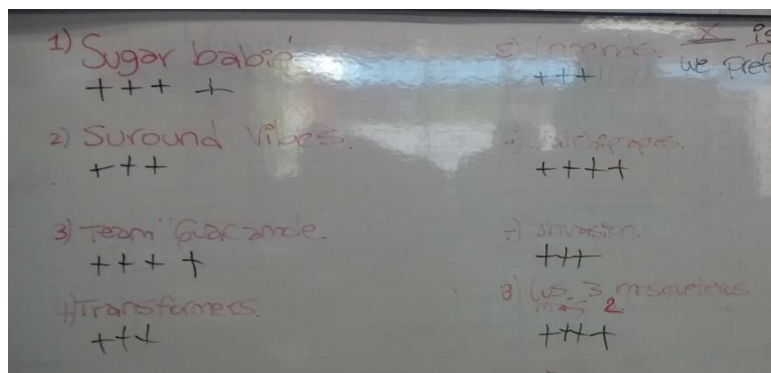 1) Sugar babie
++++
2) Suround Vibes.
+++
3) Team Guacamole.
++++
4) Transformers.
+++
5)
+++
X is
we pref
6)
++++
7) Invasion.
+++
8) Los 3 mosqueteros
mas 2
++++